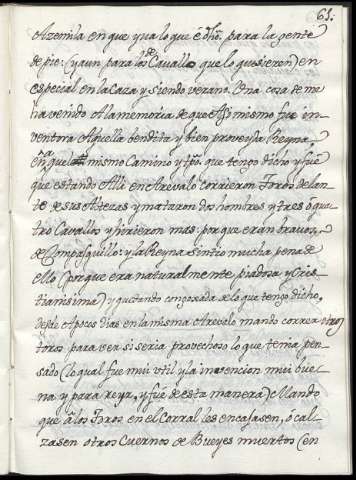 61.
Azemila en que yva lo que e dho. para la gente
de pie: (y aun para los de Cavallo que lo quisieren) en
especial en la Caza y siendo verano. Una cosa de me
ha venido A la memoria de que Assi mismo fue in-
ventora Aquella bendita y bien proveyda Reyna
en qual mismo Camino y tpo. que tengo dicho y fue
que estando Alli en Arevalo corrieron Toros delan-
te de sus Altezas y mataron dos hombres y tres o qua
tro Cavallos y hirieron mas: porque eran bravos,
de Compasquillo: y la Reyna sintio mucha pena de
ello (porque era naturalmente piadosa y Cris-
tianisima) y quedando congoxada de lo que tengo dicho,
desde A pocos dias en la misma Arevalo mando correr otros
toros para ver si seria provechoso lo que tenia pen-
sado (lo qual fue mui util y la invencion mui bue-
na y para reyr, y fue de esta manera) Mando
que a los Toros en el Corral les encajasen, o cal-
zasen otros Cuernos de Bueyes muertos (en